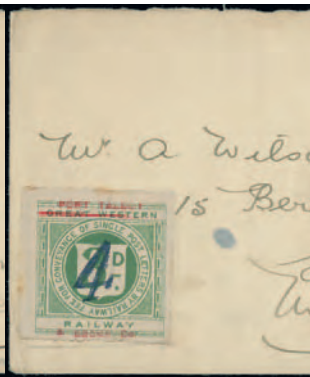 Mr. A Wils
15 Ber
PORT TALBOT
GREAT WESTERN
FEE FOR CONVEYANCE OF SINGLE POST LETTERS BY RAILWAY
4
D
RAILWAY
& DOCKS Co